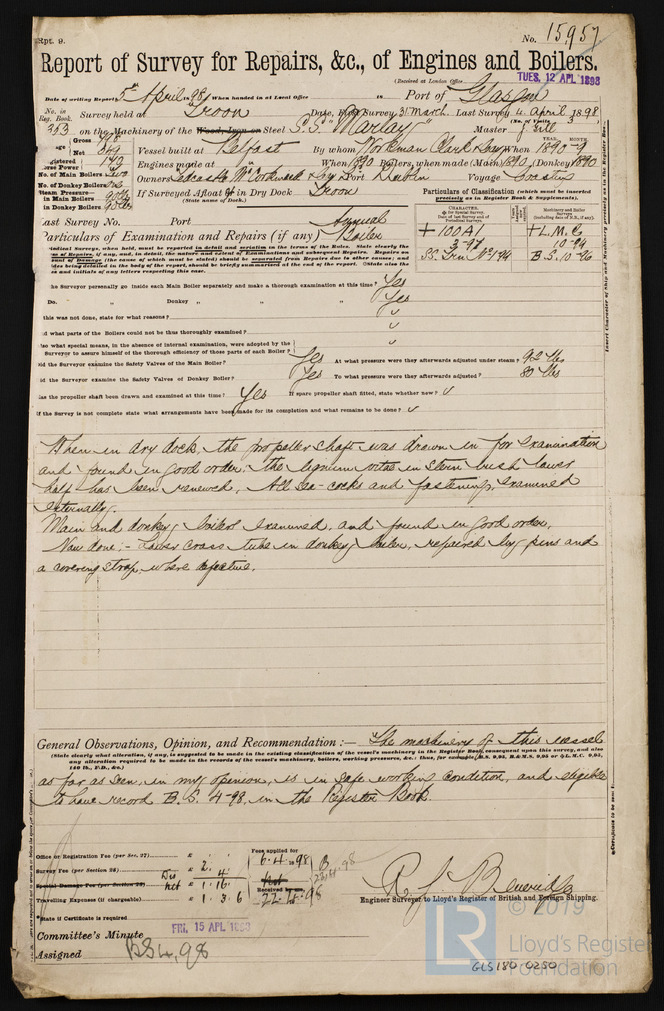 Rpt. 9.
No. 15957
Report of Survey for Repairs, &c., of Engines and Boilers.
(Received at London Office TUES. 12 APL 1898
Date of writing Report 5th April 1898 When handed in at Local Office in Port of Glasgow
No. in Reg. Book. Survey held at Troon Date, First Survey 31 March Last Survey 4 April 1898
on the Machinery of the Wood, Iron or Steel S.S. "Marlay" Master J. Gill
Gross
Net
Vessel built at Belfast By whom Workman Clark When 1890-9
Engines made at When 1890 Boilers, when made (Main) 1890 (Donkey) 1890
No. of Main Boilers Two
Owners Port Dublin Voyage Coasting
No. of Donkey Boilers
If Surveyed Afloat or in Dry Dock Troon
(State name of Dock.)
Steam Pressure—
in Main Boilers
in Donkey Boilers
Particulars of Classification (which must be inserted precisely as in Register Book & Supplements).
Last Survey No. Port
Particulars of Examination and Repairs (if any) Annual Boiler
+ 100A1
3.97
+ L.M.C.
10-94
B.S. 10-96
he Surveyor personally go inside each Main Boiler separately and make a thorough examination at this time? Yes
Do. " Donkey " " " " Yes
this was not done, state for what reasons? ✓
d what parts of the Boilers could not be thoroughly examined? ✓
lso what special means, in the absence of internal examination, were adopted by the Surveyor to assure himself of the thorough efficiency of those parts of each Boiler? ✓
id the Surveyor examine the Safety Valves of the Main Boiler? Yes At what pressure were they afterwards adjusted under steam? 92 lbs
id the Surveyor examine the Safety Valves of Donkey Boiler? Yes To what pressure were they afterwards adjusted? 80 lbs
as the propeller shaft been drawn and examined at this time? Yes If spare propeller shaft fitted, state whether new? ✓
If the Survey is not complete state what arrangements have been made for its completion and what remains to be done? ✓
When in dry dock, the propeller shaft was drawn in for examination
and found in good order. the lignum vitae in stern bush lower
half has been renewed, All sea-cocks and fastenings examined
externally.
Main and donkey boilers examined, and found in good order.
Now done:- Lower cross tube in donkey boiler, repaired by pins and
a covering strap where defective.
General Observations, Opinion, and Recommendation:— The machinery of this vessel
(State clearly what alteration, if any, is suggested to be made in the existing classification of the vessel's machinery in the Register Book, consequent upon this survey, and also
any alteration required to be made in the records of the vessel's machinery, boilers, working pressures, &c.: thus, for example,
as far as seen, in my opinion, is in safe working condition, and eligible
to have record B.S. 4-98, in the Register Book.
Office or Registration Fee (per Sec. 27) £
Survey Fee (per Section 28) £ 2.
Special Damage Fee (per Section 28) £ 1.16
Travelling Expenses (if chargeable) £ 1. 3. 6
Fees applied for
6.4.1898
Received by me,
22.4.98
State if Certificate is required
R. J. Beveridge
Engineer Surveyor to Lloyd's Register of British and Foreign Shipping.
Committee's Minute FRI. 15 APL 1898
Assigned BS 4,98
© 2019
LR
Lloyd's Register
Foundation
GLS180 0250